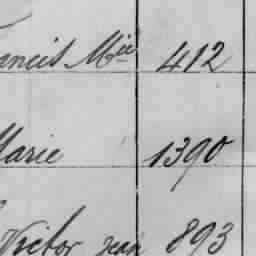 ancis Mie 412
Marie 1390
Victor Jean 893